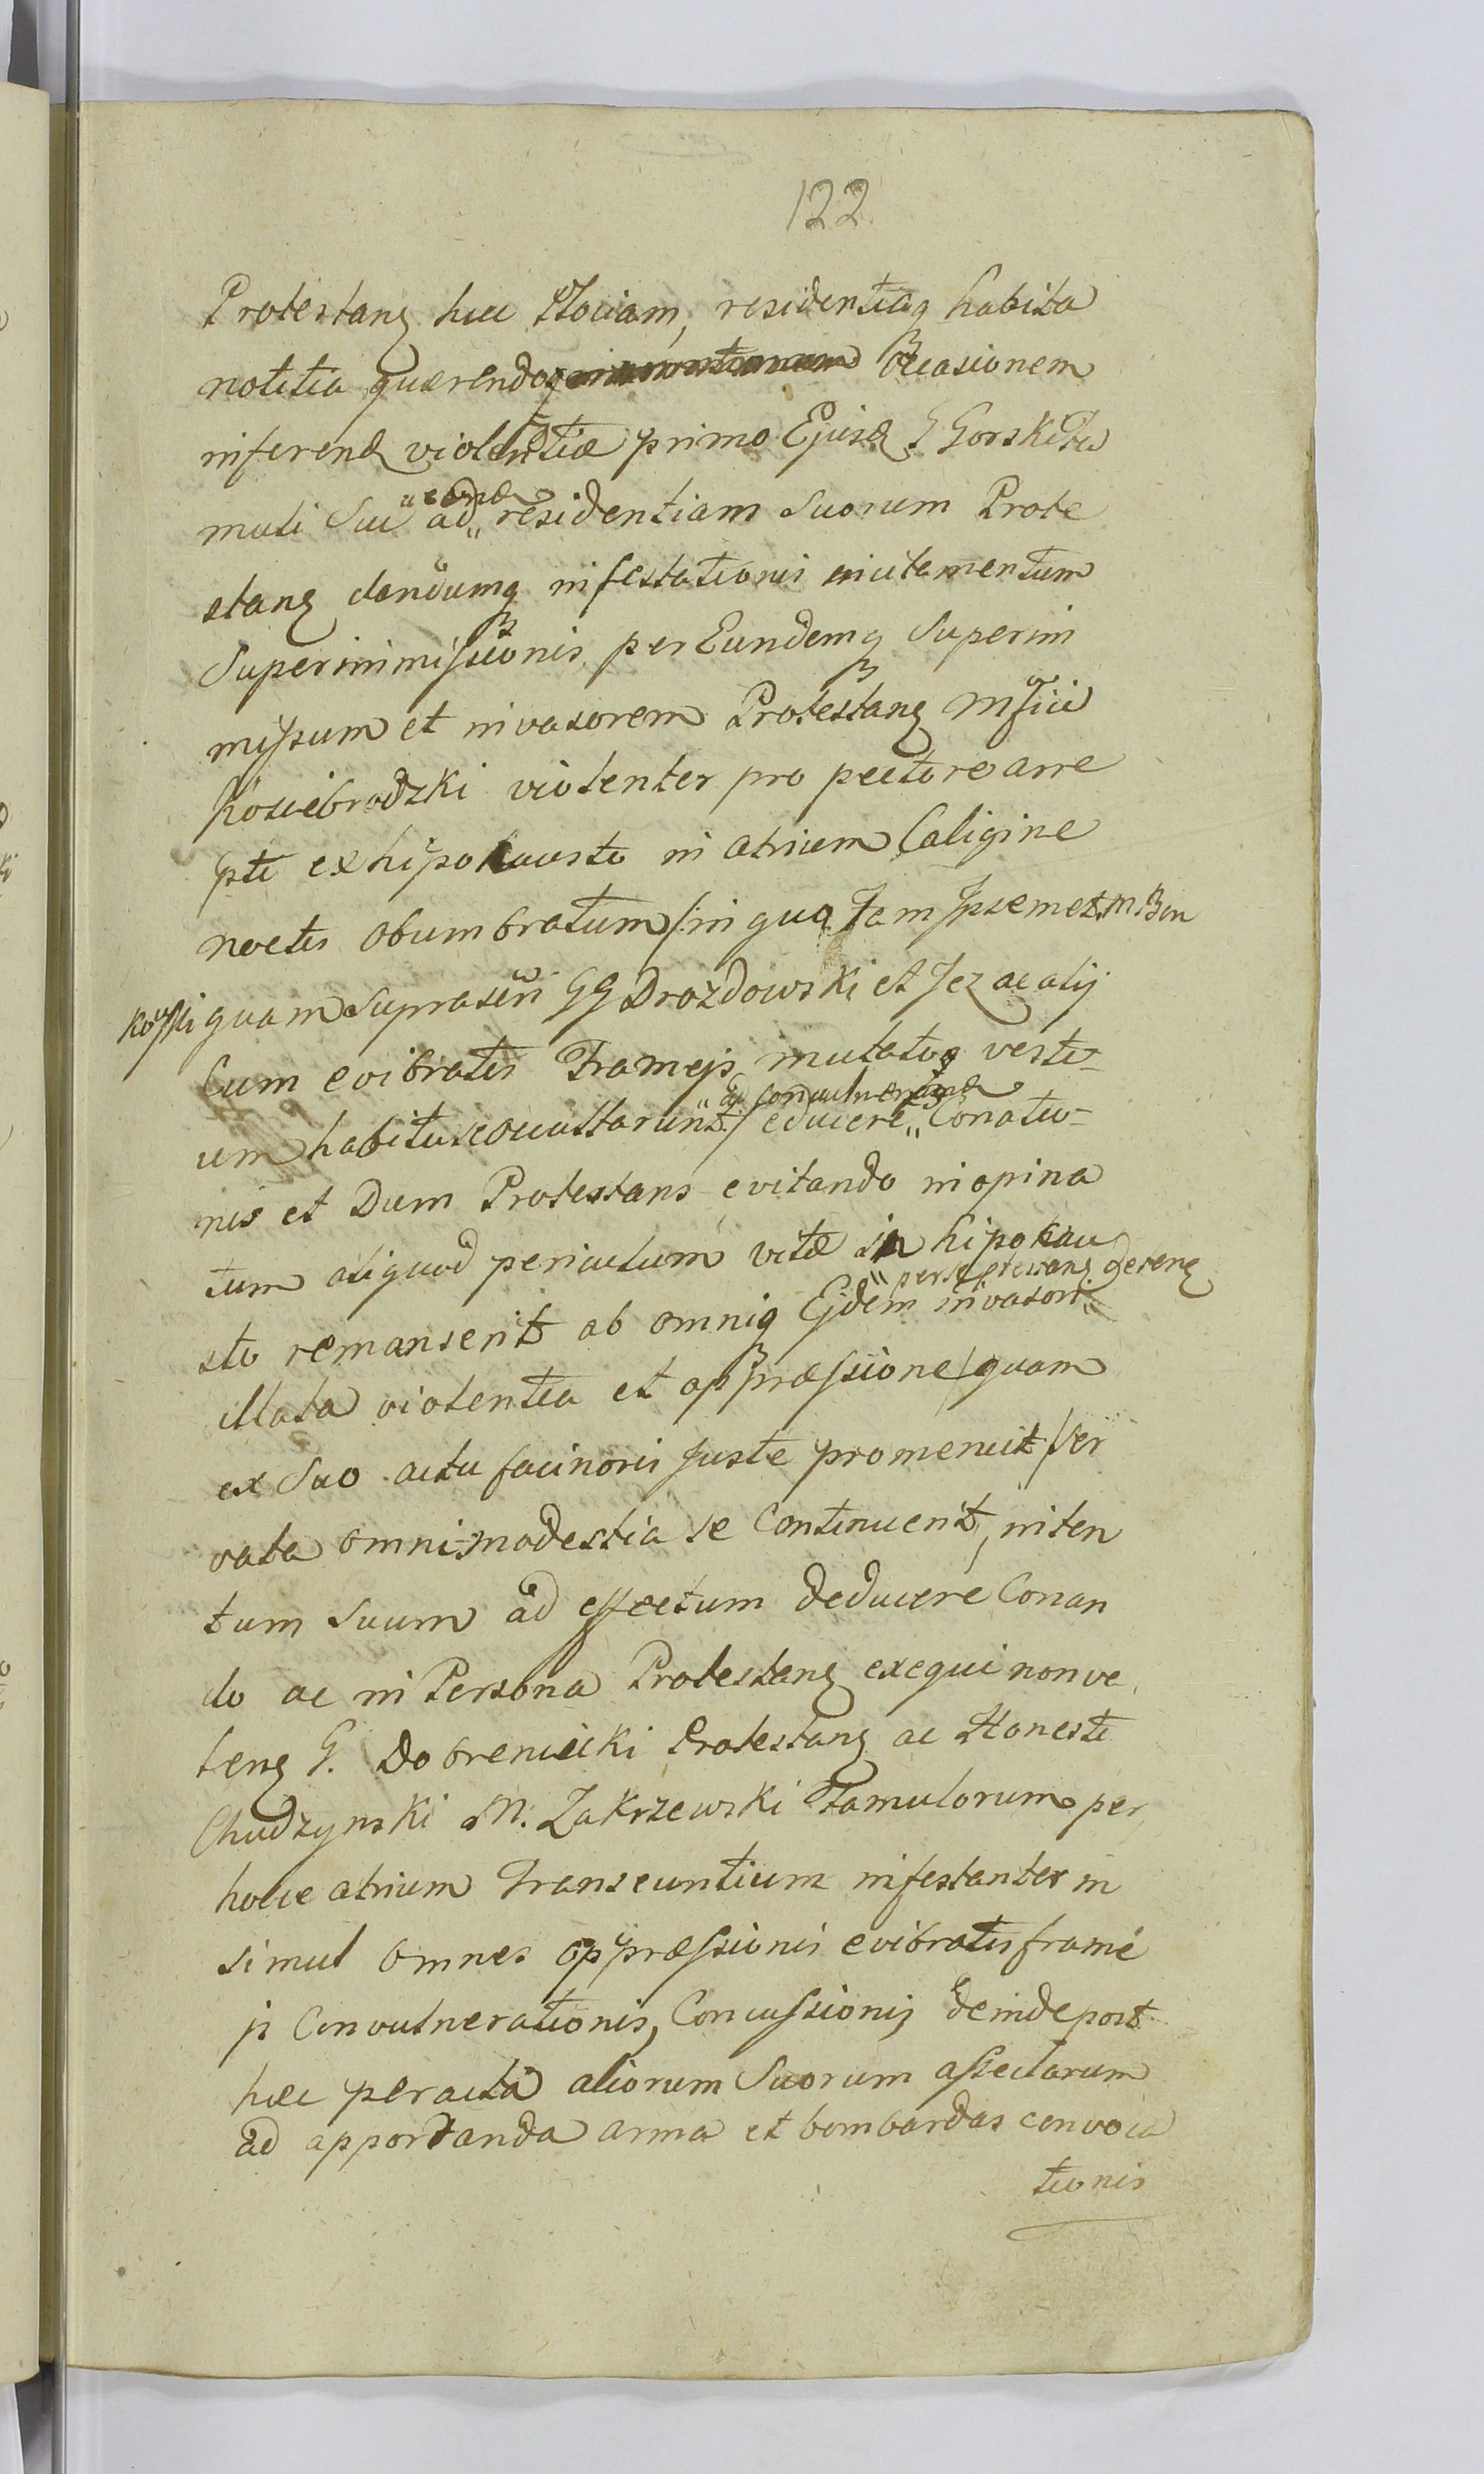 122.
Protestang huc Plociam, residentiaq habita
notitia quærendoq occasionem
inferend violentiæ primo Ejusd G Gorski fa
muli Sui ad „eand„ residentiam Suorum Prote
stang dandumq infestationis incitamentum
Superimmissionis, per Eundemq Superim
missum et invasorem Protestang Mfici
Kosciebrodzki violenter pro pectore arre
pti ex hipokausto in atrium Caligine
noctis obumbratum /:in quo Tam Ipsemet M. Bon
kowski quam Suprascri GG Drozdowski et Jez ac alij
Cum evibratis Frameis mutatoq vesti-
um habitu scocultarunt:/ educere „ad convulnerand„ Conatio-
nis et Dum Protestans evitando inopina
tum aliquod periculum vitæ in hipokau
sto remanserit ab omniq Ejdem invasori „per se ptestang detent„
illata violentia et oppræssione /quam
ex Suo actu facinoris Juste promeruit/ Ser
vata omni modestia se Continuerit, inten
tum Suum ad effectum deducere Conan
do ac in Persona Protestang exequi non va
leng G. Dobreniecki Protestang ac Honesti
Chudzynski M. Zakrzewski Famulorum per
hocce atrium Transeuntium infestanter in
simul omnes oppræssionis evibratis frame
is Convulnerationis, Concussionis deinde post
hæc peracta aliorum Suorum assectarum
ad apportanda arma et bombardas convoca
tionis